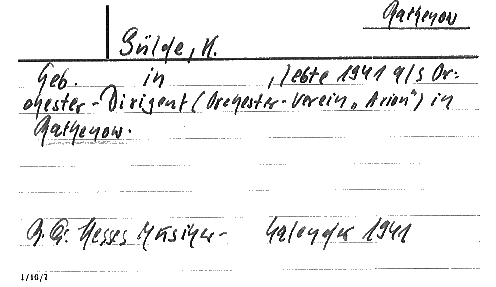 Rathenow
Gülde, H.
Geb.          in          , lebte 1941 als Or-
chester-Dirigent (Orchester-Verein „Arion“) in
Rathenow.
Q. Q. Hesses Musiker-    Kalender 1941
1/10/7